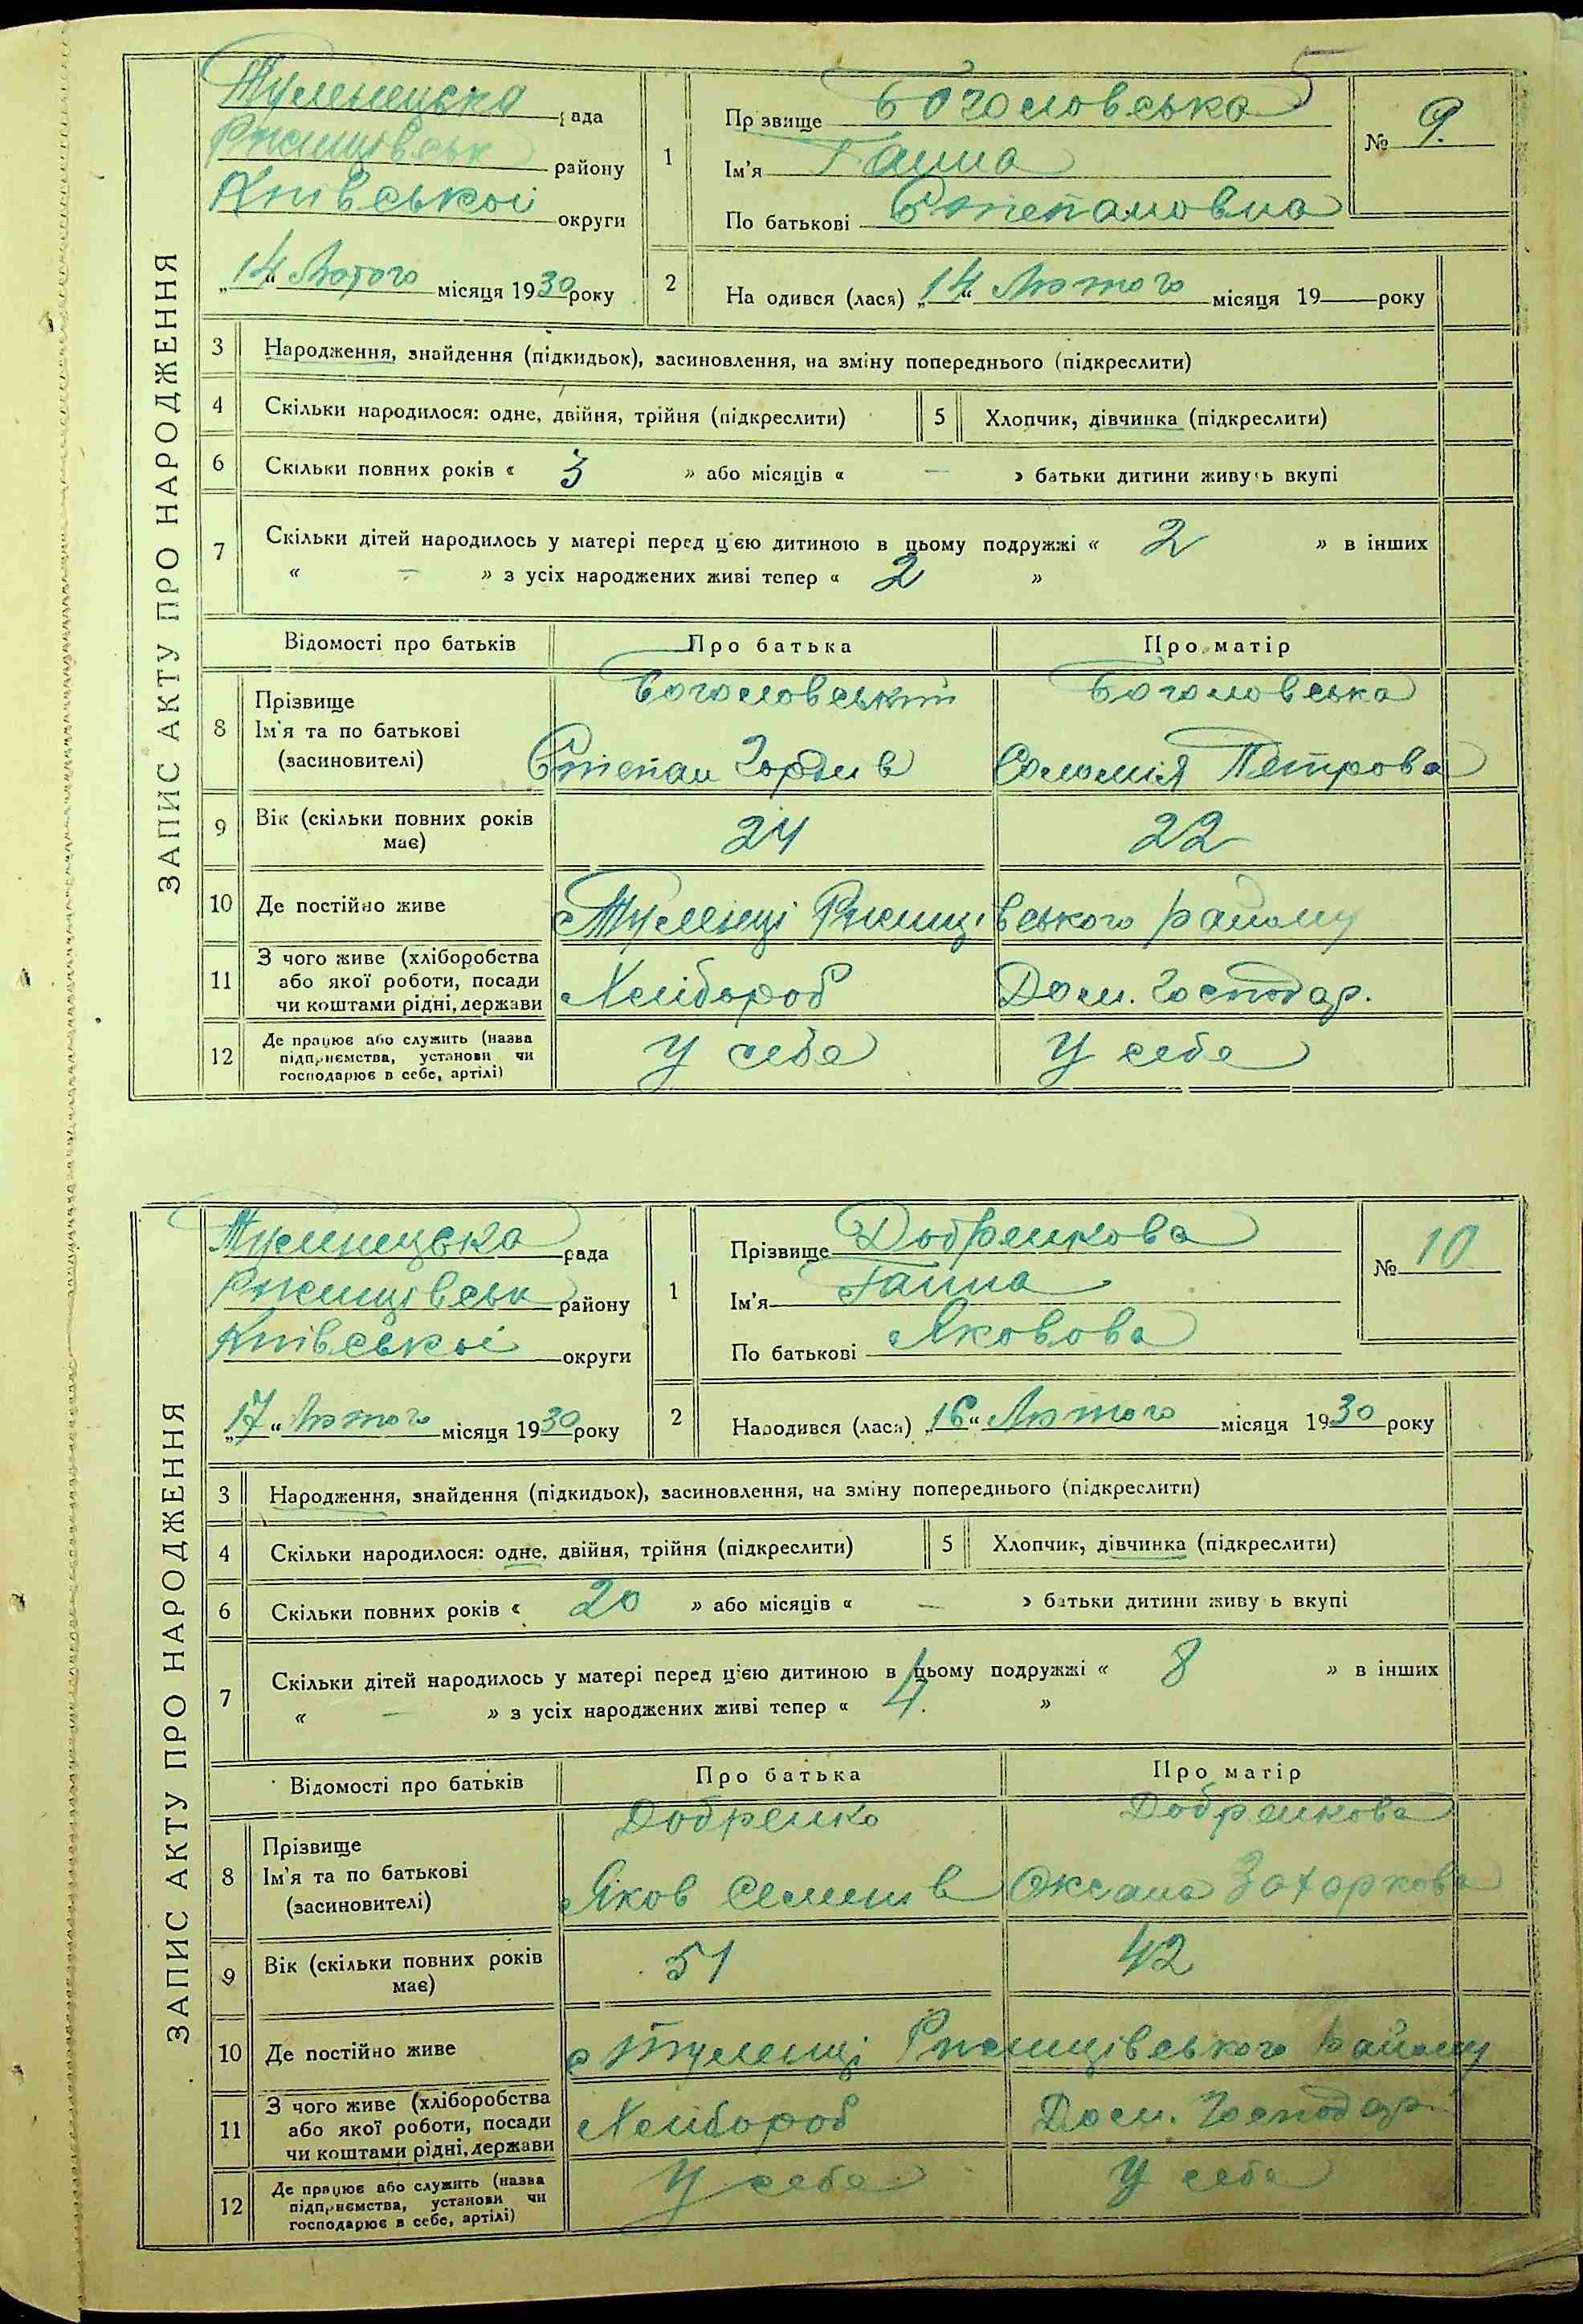 5
ЗАПИС АКТУ ПРО НАРОДЖЕННЯ
Тулинецька рада
Ржищівськ району
Київської округи
„14“ Лютого місяця 1930 року
1
Прізвище Богословська
Ім'я Ганна
По батькові Степановна
№ 9.
2
На одився (лася) „14“ Лютого місяця 19 року
3 Народження, знайдення (підкидьок), засиновлення, на зміну попереднього (підкреслити)
4 Скільки народилося: одне, двійня, трійня (підкреслити) 5 Хлопчик, дівчинка (підкреслити)
6 Скільки повних років « 3 » або місяців « – » батьки дитини живуть вкупі
7 Скільки дітей народилось у матері перед цією дитиною в цьому подружжі « 2 » в інших
« – » з усіх народжених живі тепер « 2 »
Відомості про батьків Про батька Про матір
8 Прізвище Ім'я та по батькові (засиновителі)
Богословський Богословська
Степан Гордіїв Соломія Петрова
9 Вік (скільки повних років має) 24 22
10 Де постійно живе с Тулинці Ржищівського району
11 З чого живе (хліборобства або якої роботи, посади чи коштами рідні, держави Хлібороб Дом. господар.
12 Де працює або служить (назва підприємства, установи чи господарює в себе, артілі) У себе У себе
ЗАПИС АКТУ ПРО НАРОДЖЕННЯ
Тулинецька рада
Ржищівськ району
Київської округи
„17“ Лютого місяця 1930 року
1
Прізвище Добренкова
Ім'я Ганна
По батькові Яковова
№ 10
2
Народився (лася) „16“ Лютого місяця 1930 року
3 Народження, знайдення (підкидьок), засиновлення, на зміну попереднього (підкреслити)
4 Скільки народилося: одне, двійня, трійня (підкреслити) 5 Хлопчик, дівчинка (підкреслити)
6 Скільки повних років « 20 » або місяців « – » батьки дитини живу ь вкупі
7 Скільки дітей народилось у матері перед цією дитиною в цьому подружжі « 8 » в інших
« – » з усіх народжених живі тепер « 4. »
Відомості про батьків Про батька Про матір
8 Прізвище Ім'я та по батькові (засиновителі)
Добренко Добренкова
Яков Семенів Оксана Захаркова
9 Вік (скільки повних років має) 51 42
10 Де постійно живе с Тулинці Ржищівського району
11 З чого живе (хліборобства або якої роботи, посади чи коштами рідні, держави Хлібороб Дом. господар.
12 Де працює або служить (назва підприємства, установи чи господарює в себе, артілі) У себе У себе